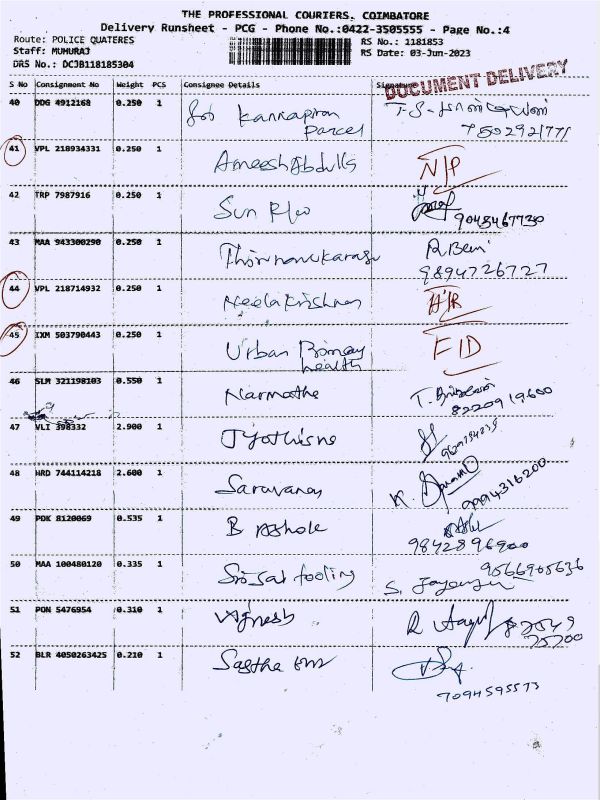 THE PROFESSIONAL COURIERS, COIMBATORE
Delivery Runsheet - PCG - Phone No.:0422-3505555 - Page No.:4
Route: POLICE QUATERES
RS No.: 1181853
Staff: MUMURAJ
RS Date: 03-Jun-2023
DRS No.: DCJB118185304
DOCUMENT DELIVERY
S No Consignment No Weight PCS Consignee Details Signature
40 DDG 4912168 0.250 1 Kannapran
Parcel
7502921771
41 VPL 218934331 0.250 1 Ameesh Abdulla N/P
42 TRP 7987916 0.250 1 Sun 9045467730
43 MAA 943300290 0.250 1 Thirunavukarasu R.Beni
9894726727
44 VPL 218714932 0.250 1 Neelakrishnan
45 IXM 503790443 0.250 1 Urban Bombay FID
health
46 SLM 321198103 0.550 1 Narmatha T.
8220919600
47 VLI 398332 2.900 1 Jyothisne
48 HRD 744114218 2.600 1 Saravanan K.
9994316200
49 PDK 8120069 0.535 1 B Ashok
9842896900
50 MAA 100480120 0.335 1 Sri Sai tooling 9566905636
S.
51 PON 5476954 0.310 1 Vignesh R
75200
52 BLR 4050263425 0.210 1 Sastha
7094595573